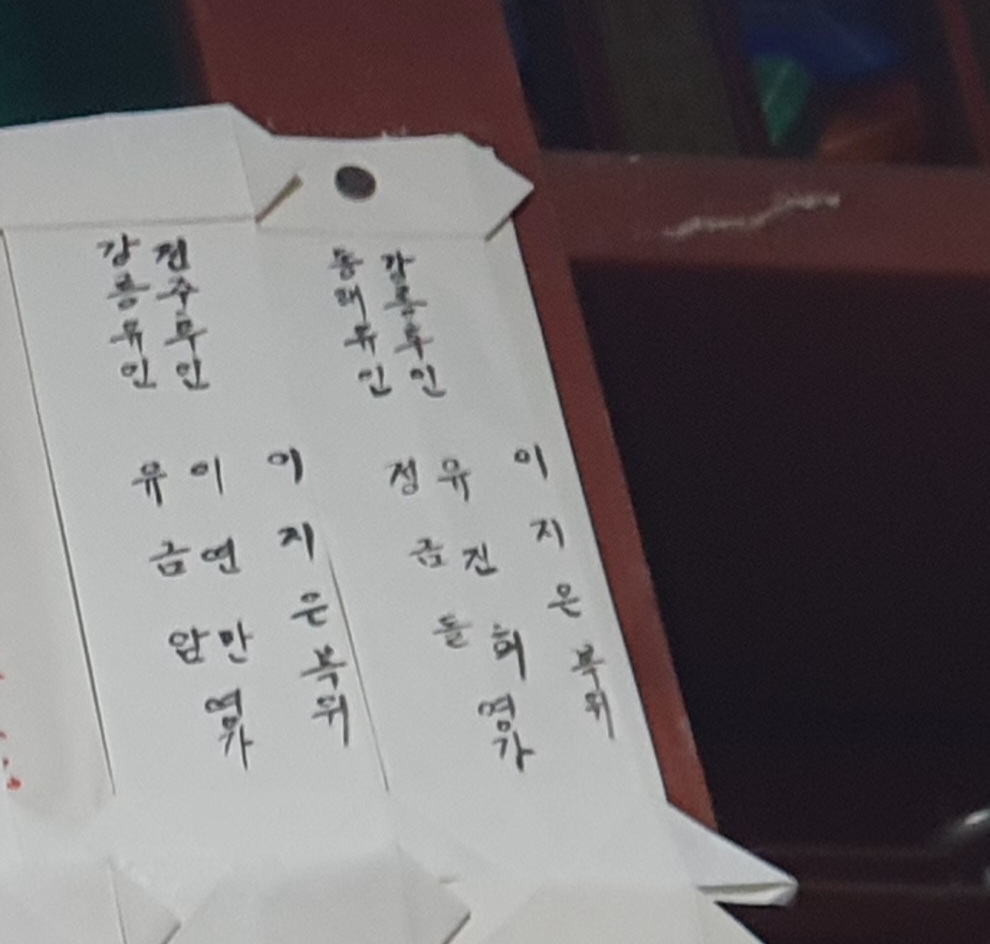 이지은복위
강릉후인 유진희
동래유인 정금돌
영가
이지은복위
전주후인 이연만
강릉유인 유금암
영가